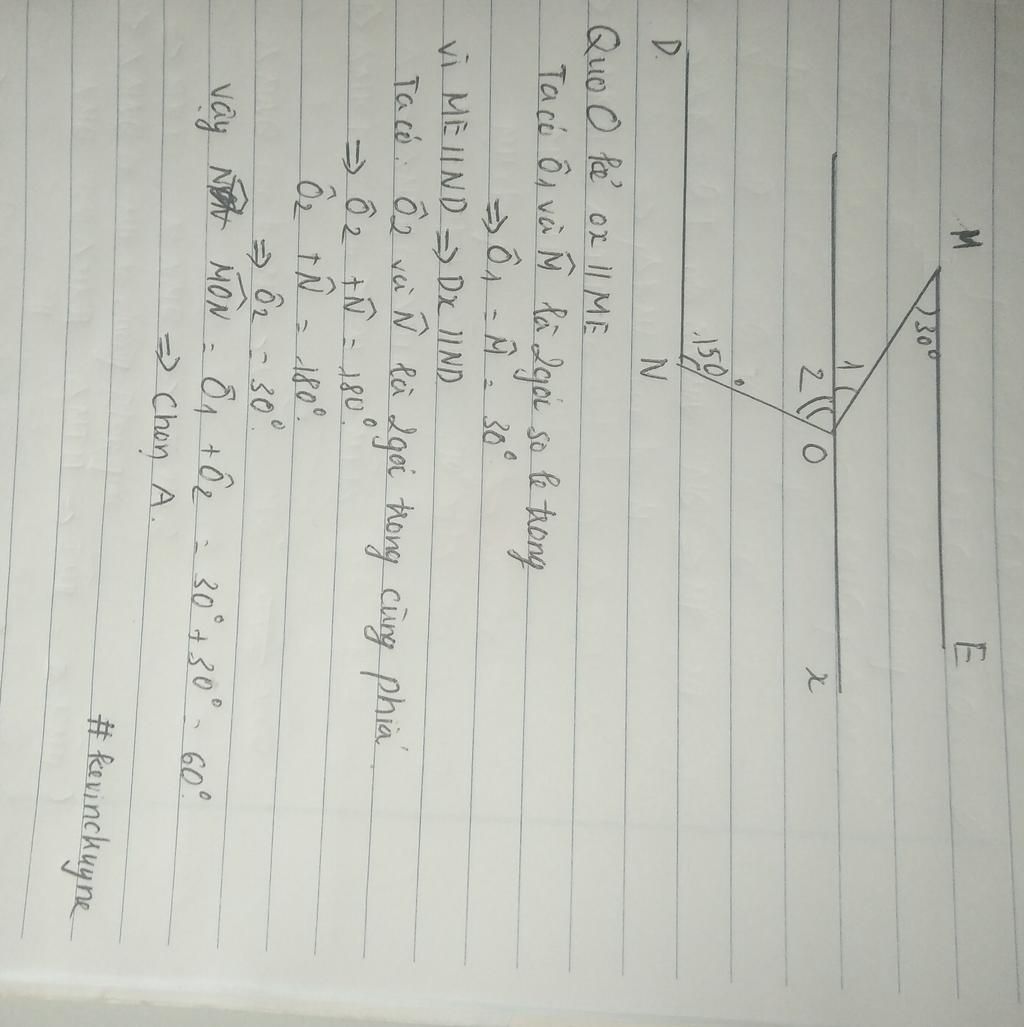 M E
30°
1
2 O x
150°
D. N
Qua O kẻ ox // ME
Ta có Ô1 và M̂ là 2 góc so le trong
=> Ô1 = M̂ = 30°
vì ME // ND => Dx // ND
Ta có: Ô2 và N̂ là 2 góc trong cùng phía.
=> Ô2 + N̂ = 180°
Ô2 + N̂ = 180°.
=> Ô2 = 30°.
vậy MÔN = Ô1 + Ô2 = 30° + 30° = 60°.
=> Chọn A.
#kevinchuyne